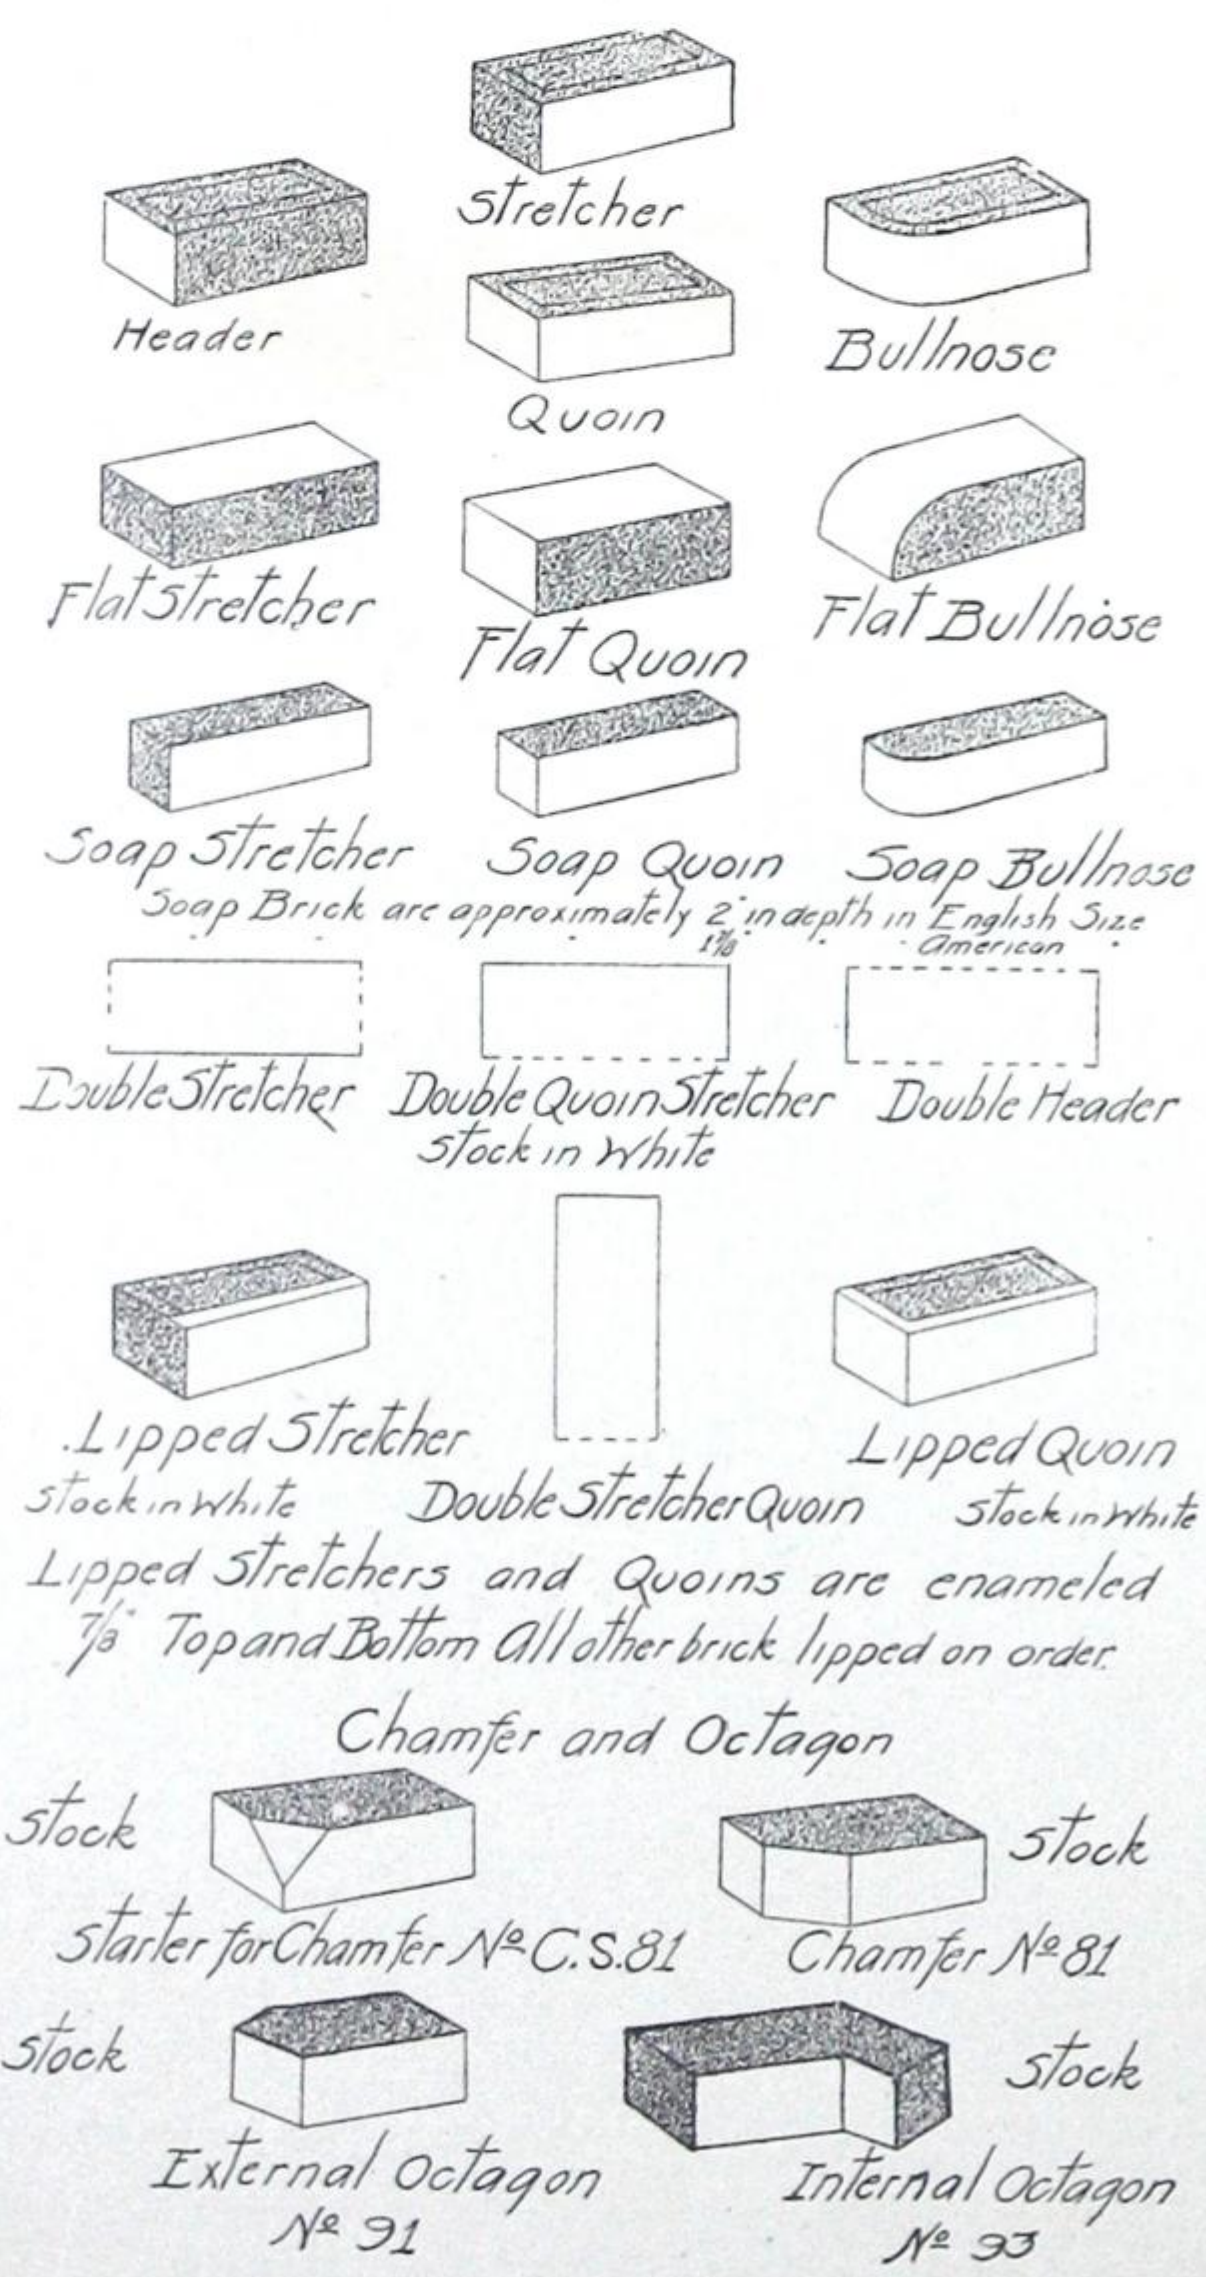 Stretcher
Header
Quoin
Bullnose
Flat Stretcher
Flat Quoin
Flat Bullnose
Soap Stretcher
Soap Quoin
Soap Bullnose
Soap Brick are approximately 2" in depth in English Size
1 7/8" American
Double Stretcher
Double Quoin Stretcher
Stock in White
Double Header
Lipped Stretcher
Stock in White
Double Stretcher Quoin
Lipped Quoin
Stock in White
Lipped Stretchers and Quoins are enameled
7/8" Top and Bottom All other brick lipped on order.
Chamfer and Octagon
Stock
Starter for Chamfer Nº C.S.81
Stock
Chamfer Nº 81
Stock
External Octagon
Nº 91
Stock
Internal Octagon
Nº 93